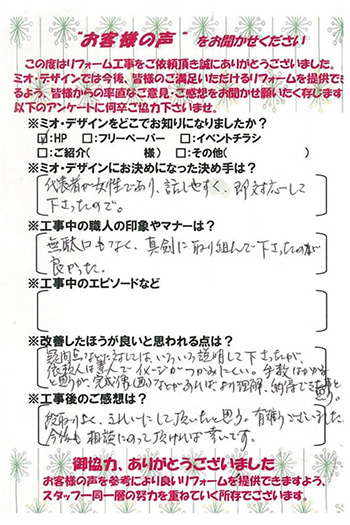 "お客様の声" をお聞かせください
この度はリフォーム工事をご依頼頂き誠にありがとうございました。
ミオ・デザインでは今後、皆様のご満足いただけるリフォームを提供でき
るよう、皆様からの率直なご意見・ご感想をお聞かせ願いたく存します
以下のアンケートに何卒ご協力下さいませ。
※ミオ・デザインをどこでお知りになりましたか?
☑:HP □:フリーペーパー □:イベントチラシ
□:ご紹介( 様) □:その他( )
※ミオ・デザインにお決めになった決め手は?
代表者が女性であり、話しやすく、即対応して
下さったので。
※工事中の職人の印象やマナーは?
無駄口もなく、真剣に取り組んで下さったのが
良かった。
※工事中のエピソードなど
※改善したほうが良いと思われる点は?
疑問点などに対しては、いろいろ説明して下さったが、
依頼人は素人でイメージがつかみにくい。手数はかかる
と思うが、完成像(画)などがあればより理解、納得できると
思う。
※工事後のご感想は?
段取りよく、きれいにして頂いたと思う。有難うございました。
今後も相談にのって頂ければ幸いです。
御協力、ありがとうございました
お客様の声を参考により良いリフォームを提供できますよう、
スタッフ一同一層の努力を重ねていく所存でございます。